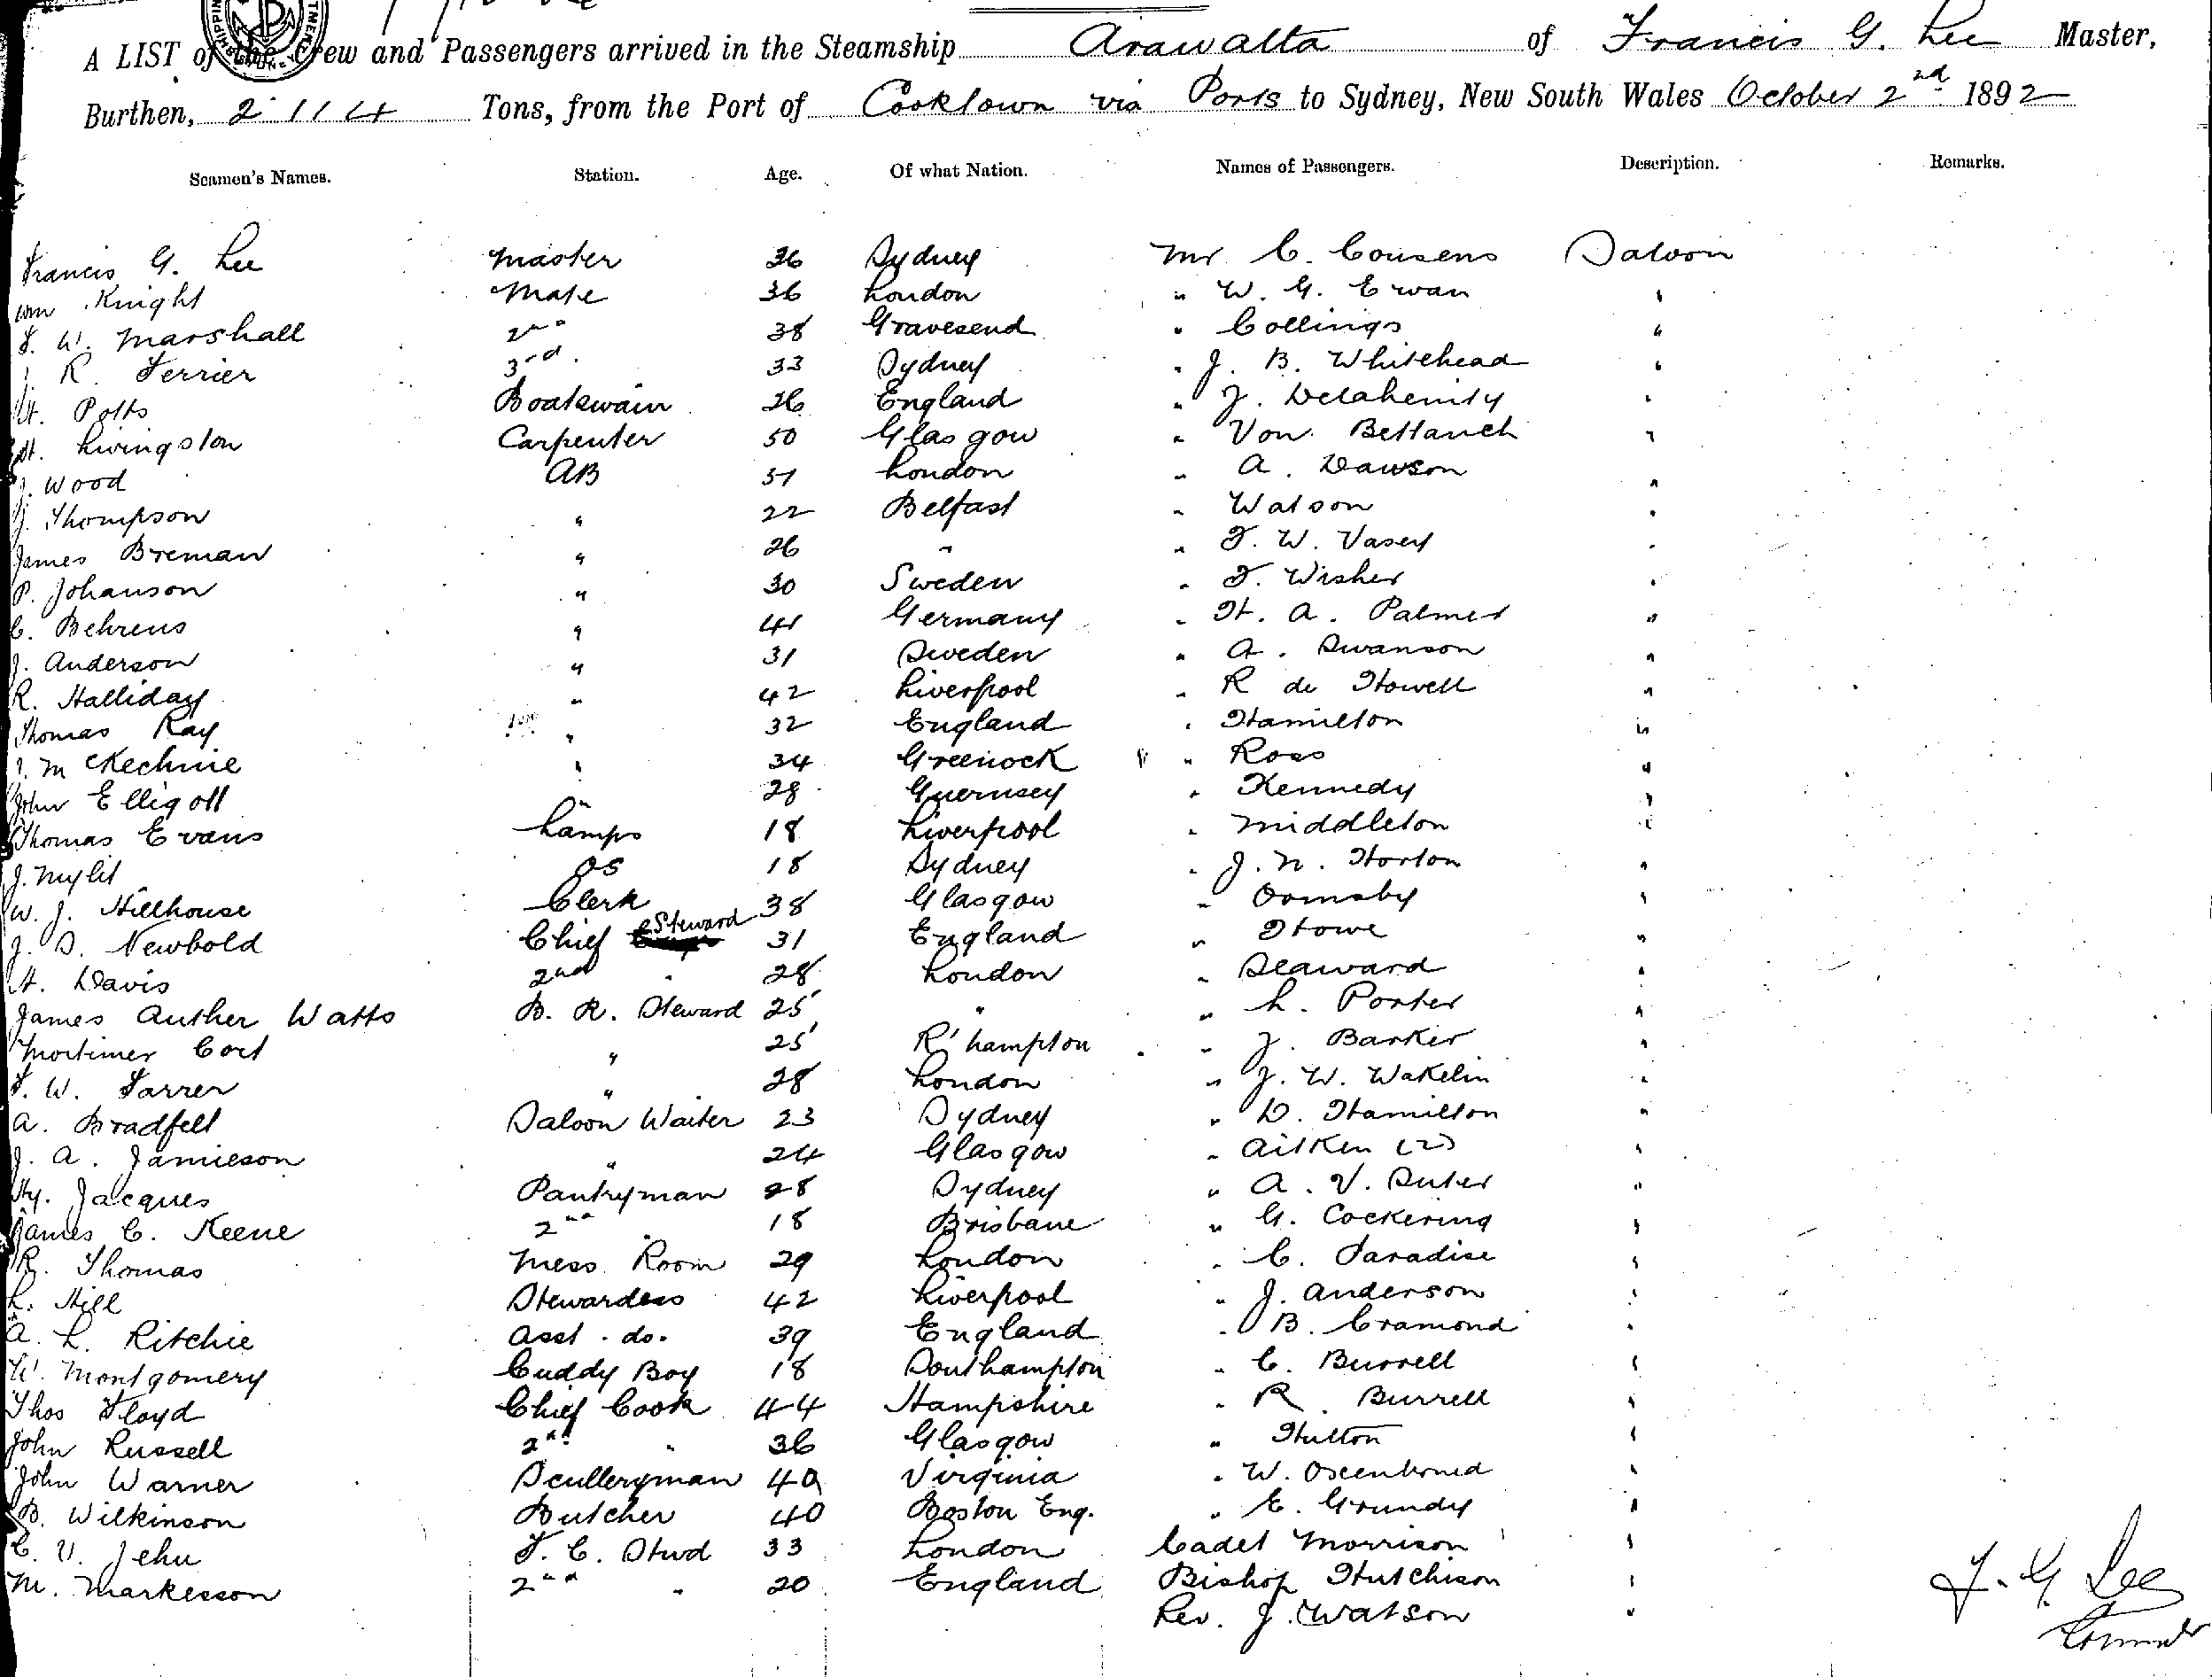 A LIST of the Crew and Passengers arrived in the Steamship Arawatta of Francis G. Lee Master,
Burthen, 2114 Tons, from the Port of Cooktown via Ports to Sydney, New South Wales October 2nd 1892
Seamen's Names. Station. Age. Of what Nation. Names of Passengers. Description. Remarks.
Francis G. Lee Master 36 Sydney Mr C. Cousens Saloon
Wm Knight Mate 36 London " W. G. Ewan "
F. W. Marshall 2nd 38 Gravesend " Collings "
R. Ferrier 3rd. 33 Sydney " J. B. Whitehead "
Potts Boatswain 26 England " J. Delahenity "
Livingston Carpenter 50 Glasgow " Von "
J. Wood AB London " A. Dawson "
J. Thompson " 22 Belfast " Watson "
James Breman " 26 " " F. W. Vasey "
P. Johanson " 30 Sweden " F. Wisher "
C. Behrens " 41 Germany " H. A. Palmer "
J. Anderson " 31 Sweden " A. Swanson "
R. Halliday " 42 Liverpool " R de Howell "
Thomas Ray " 32 England " Hamilton "
McKechnie " 34 Greenock " Ross "
John Elligott " 28 Guernsey " Kennedy "
Thomas Evans Lamps 18 Liverpool " Middleton "
J. OS 18 Sydney " J. N. Horton "
W. J. Hillhouse Clerk 38 Glasgow " Ormsby "
J. S. Newbold Chief Steward 31 England " Howe "
H. Davis 2nd " 28 London " Seaward "
James Auther Watts B. R. Steward 25 " " L. Porter "
Mortimer Cort " 25 R'hampton " J. Barker "
F. W. Farrer " 28 London " J. W. Wakelin "
A. Bradfelt Saloon Waiter 23 Sydney " D. Hamilton "
J. A. Jamieson " 24 Glasgow " Aitken (2) "
Hy. Jacques Pantryman 28 Sydney " A. V. Suter "
James C. Keene 2nd " 18 Brisbane " G. Cockering "
R. Thomas Mess Room 29 London " C. Paradise "
L. Hill Stewardess 42 Liverpool " J. Anderson "
A. L. Ritchie Asst. do. 39 England " B. Cramond "
W. Montgomery Cuddy Boy 18 Southampton " C. Burrell "
Thos Floyd Chief Cook 44 Hampshire " R. Burrell "
John Russell 2nd " 36 Glasgow " Hutton "
John Warner Sculleryman 40 Virginia " W. "
B. Wilkinson Butcher 40 Boston Eng. " E. Grundy "
C. V. Jehu F. C. Stwd 33 London Cadet Morrison "
M. Markesson 2nd " 20 England Bishop Hutchison "
Rev. J. Watson "
F. G. Lee